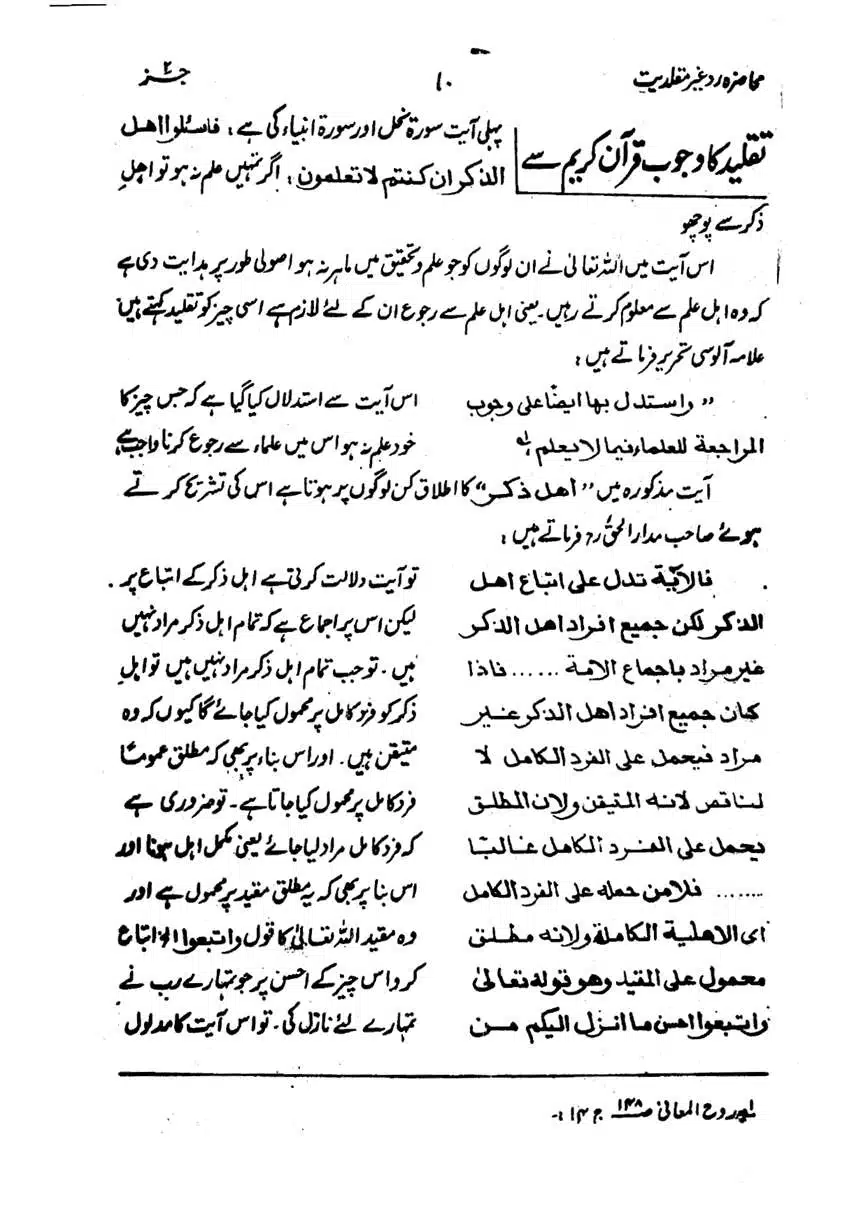 محاضرہ رد غیر مقلدیت ۱۰ جز ۲
تقلید کا وجوب قرآن کریم سے
پہلی آیت سورۃ نحل اور سورۃ انبیاء کی ہے : فاسئلوا اھل
الذکر ان کنتم لا تعلمون : اگر تمہیں علم نہ ہو تو اہلِ
ذکر سے پوچھو
اس آیت میں اللہ تعالیٰ نے ان لوگوں کو جو علم و تحقیق میں ماہر نہ ہو اصولی طور پر ہدایت دی ہے
کہ وہ اہل علم سے معلوم کرتے رہیں۔ یعنی اہل علم سے رجوع ان کے لئے لازم ہے اسی چیز کو تقلید کہتے ہیں
علامہ آلوسی تحریر فرماتے ہیں :
”واستدل بها ايضًا على وجوب
المراجعة للعلماء فيما لا يعلم لہ
اس آیت سے استدلال کیا گیا ہے کہ جس چیز کا
خود علم نہ ہو اس میں علماء سے رجوع کرنا واجب ہے
آیت مذکورہ میں ”اھل ذکر“ کا اطلاق کن لوگوں پر ہوتا ہے اس کی تشریح کرتے
ہوئے صاحب مدار الحقؒ فرماتے ہیں :
فالاٰیة تدل على اتباع اهل
الذكر لكن جميع افراد اهل الذكر
غير مراد باجماع الامة ...... فاذا
كان جميع افراد اهل الذكر غير
مراد فيحمل على الفرد الكامل لا
لناقص لانه المتيقن ولان المطلق
يحمل على الفرد الكامل غالبًا
....... فلامن حمله على الفرد الكامل
اى الاهلية الكاملة ولانه مطلق
محمول على المقيد وهو قوله تعالىٰ
واتبعوا احسن ما انزل اليكم من
تو آیت دلالت کرتی ہے اہل ذکر کے اتباع پر ۔
لیکن اس پر اجماع ہے کہ تمام اہل ذکر مراد نہیں
ہیں ۔ تو جب تمام اہل ذکر مراد نہیں ہیں تو اہلِ
ذکر کو فرد کامل پر محمول کیا جائے گا کیوں کہ وہ
متیقن ہیں۔ اور اس بناء پر بھی کہ مطلق عمومًا
فرد کامل پر محمول کیا جاتا ہے ۔ تو ضروری ہے
کہ فرد کامل مراد لیا جائے یعنی مکمل اہل ہونا اور
اس بنا پر بھی کہ یہ مطلق مقید پر محمول ہے اور
وہ مقید اللہ تعالیٰ کا قول واتبعوا الخ اتباع
کرو اس چیز کے احسن پر جو تمہارے رب نے
تمہارے لئے نازل کی ۔ تو اس آیت کا مدلول
لہ روح المعانی ص ۱۴۸ ج ۱۴ :-